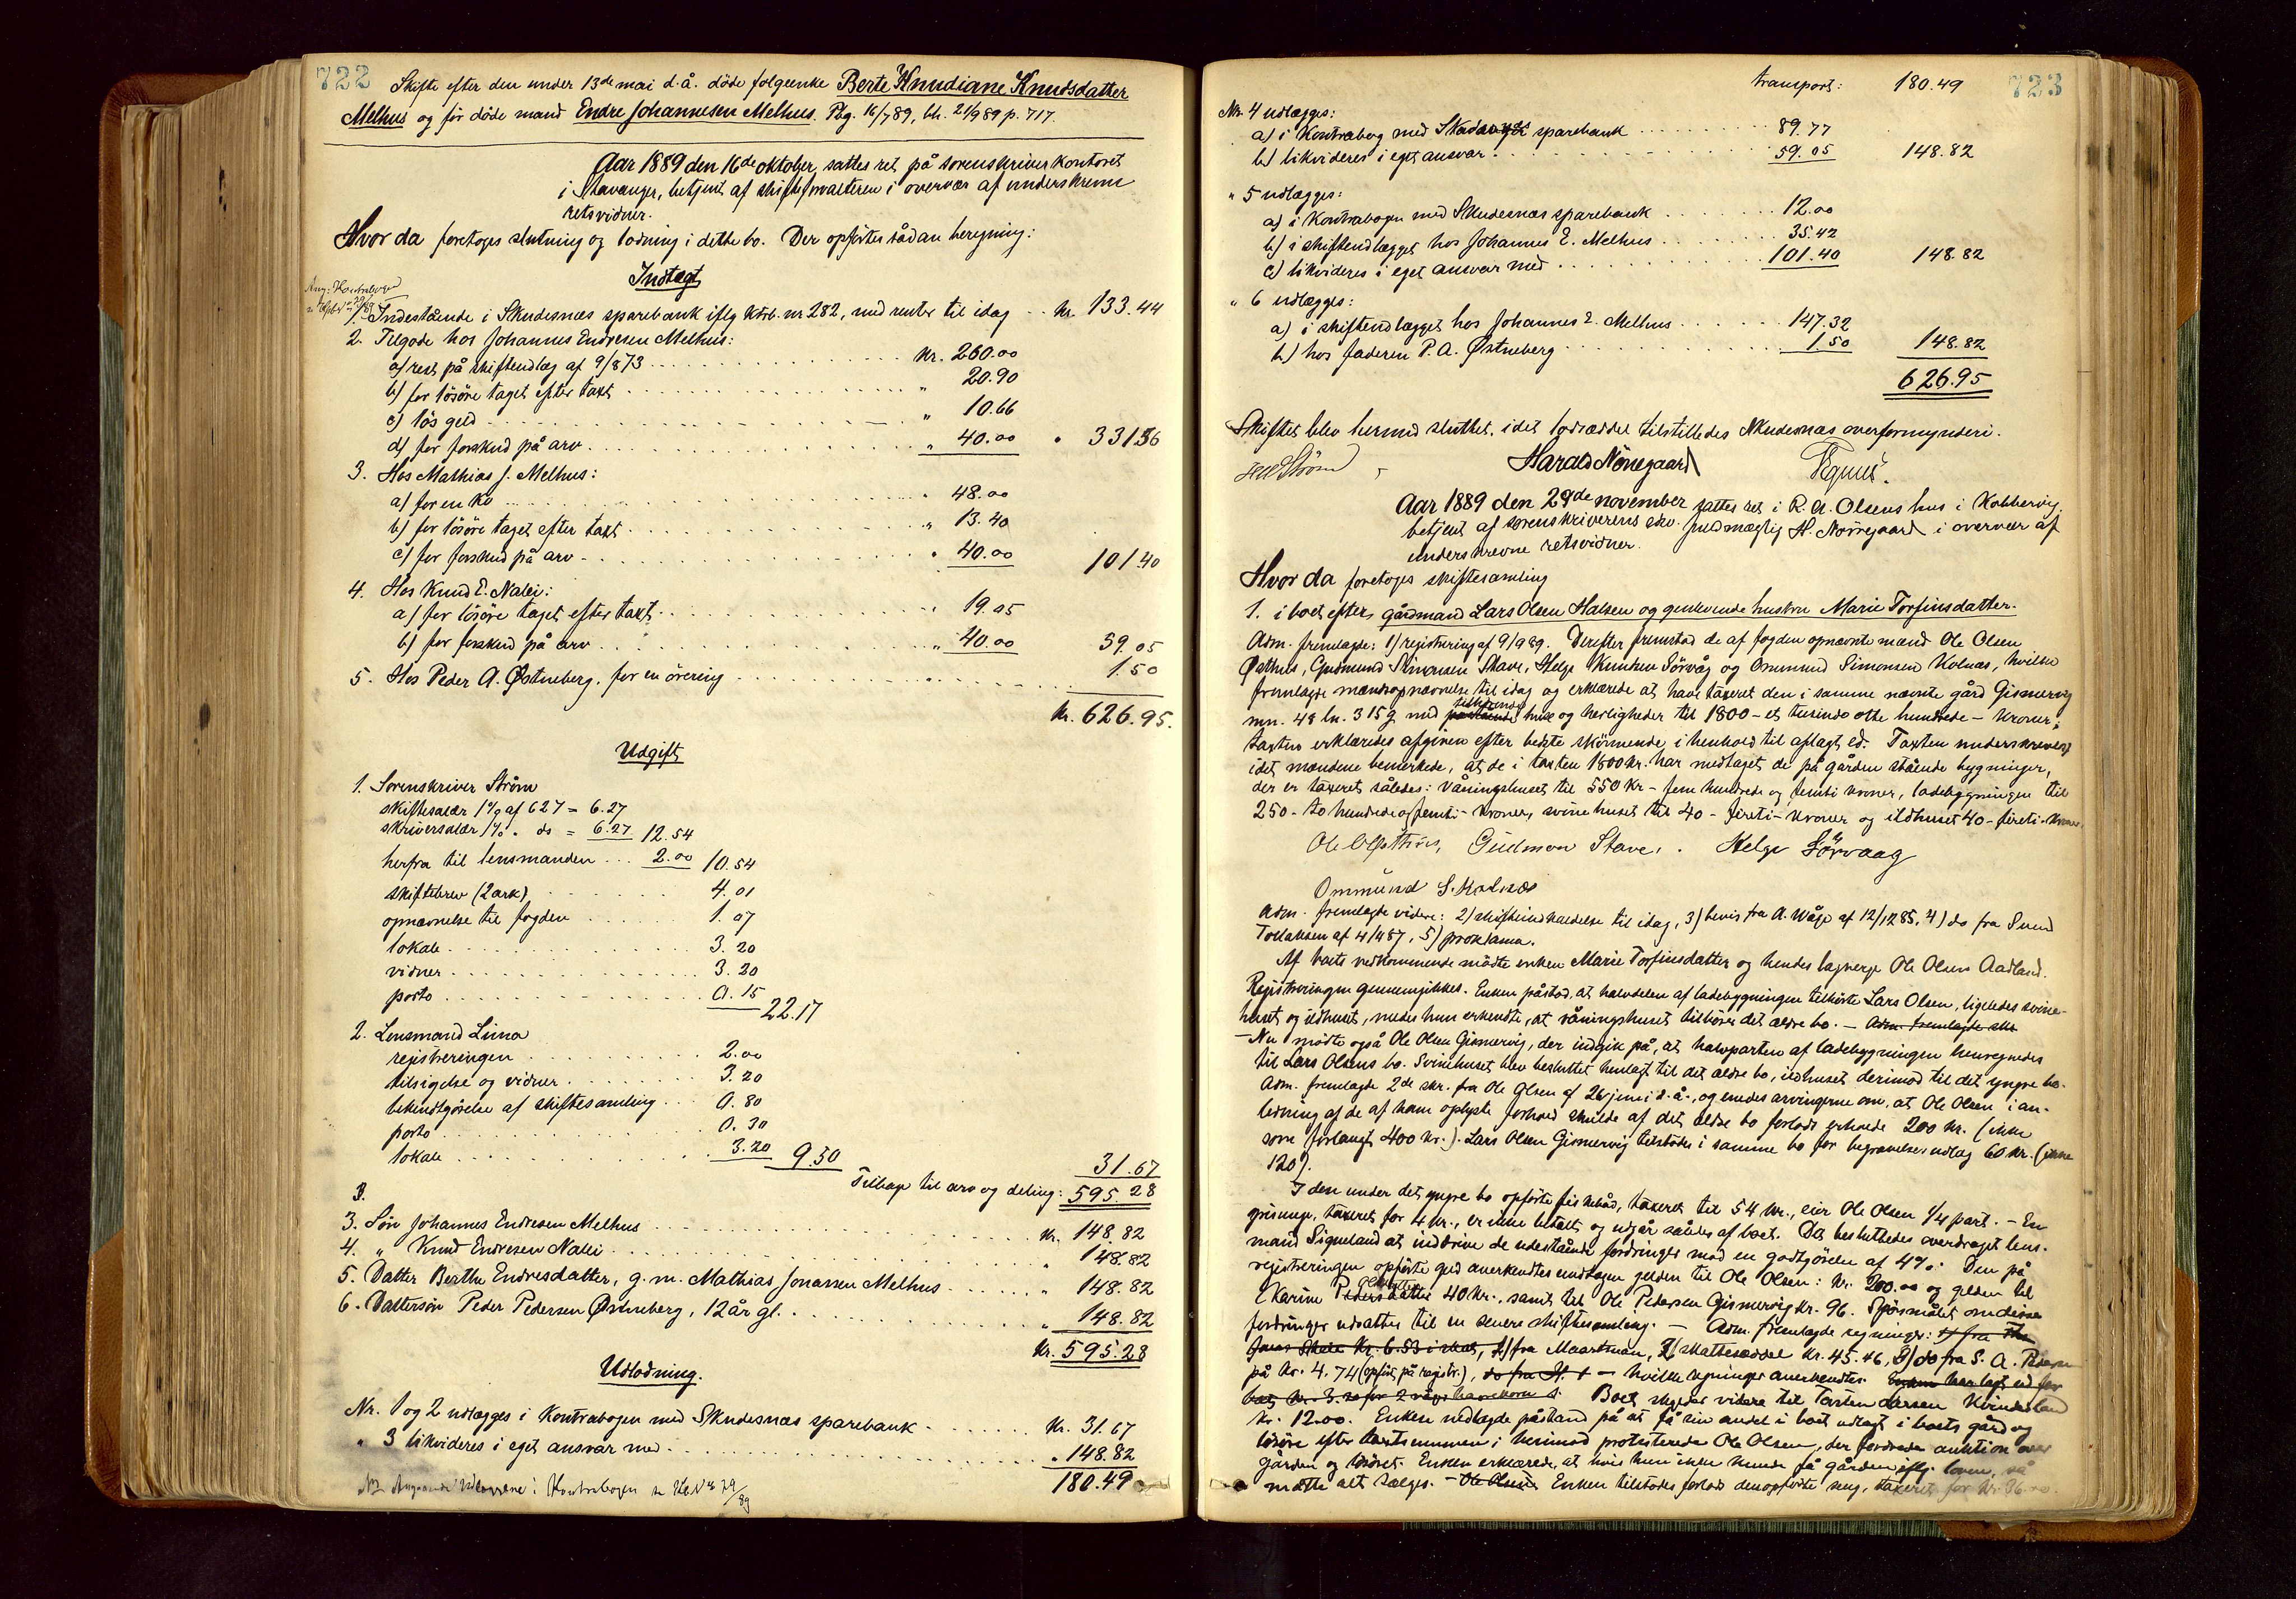 722
Skifte efter den under 13de mai d.å. döde folgeenke Berte Knudiane Knudsdatter
Melhus og før döde mand Endre Johannesen Melhus. Rg. 16/789, bh. 21/989 p. 717.
Aar 1889 den 16de oktober, sattes ret på sorenskriverkontoret
i Stavanger, betjent af skifteforvalteren i overvær af underskrevne
retsvidner.
Hvor da foretoges slutning og lodning i dette bo. Der opförtes sådan beregning:
Indtægt
1. Indestående i Skudesnæs sparebank iflg ktrb. nr 282, med renter til idag .. Kr. 133.44
2. Tilgode hos Johannes Endresen Melhus:
a) rest på skifteudlæg af 9/873 ... Kr. 260.00
b) for lösöre taget efter taxt ... " 20.90
c) lös geld ... " 10.66
d) for forskud på arv ... " 40.00 " 331.56
3. Hos Mathias J. Melhus:
a) for en ko ... " 48.00
b) for lösöre taget efter taxt ... " 13.40
c) for forskud på arv ... " 40.00 101.40
4. Hos Knud E. Nalei:
a) for lösöre taget efter taxt ... " 19.05
b) for forskud på arv ... " 40.00 59.05
5. Hos Peder A. Østneberg, for en örering ... 1.50
Kr. 626.95.
Udgift
1. Sorenskriver Ström
skiftesalær 1% af 627 = 6.27
skriversalær 1% " do = 6.27 12.54
herfra til lensmanden ... 2.00 10.54
skiftebrev (2 ark) ... 4.01
opnævnelse til fogden ... 1.07
lokale ... 3.20
vidner ... 3.20
porto ... 0.15 22.17
2. Lensmand Lima
registreringen ... 2.00
tilsigelse og vidner ... 3.20
bekendtgörelse af skiftesamling ... 0.80
porto ... 0.30
lokale ... 3.20 9.50 31.67
Tilbage til arv og deling: 595.28
3.
3. Sön Johannes Endresen Melhus ... Kr. 148.82
4. " Knud Endresen Nalei ... " 148.82
5. Datter Berthe Endresdatter, g. m. Mathias Jonassen Melhus ... " 148.82
6. Dattersön Peder Pedersen Østneberg, 12 år gl. ... " 148.82
Kr. 595.28
Udlodning.
Nr. 1 og 2 udlægges i Kontrabogen med Skudesnæs sparebank ... Kr. 31.67
" 3 likvideres i eget ansvar med ... " 148.82
180.49
723
transport: 180.49
Nr. 4 udlægges:
a) i Kontrabog med sparebank ... 89.77
b) likvideres i eget ansvar ... 59.05 148.82
" 5 udlægges:
a) i Kontrabogen med Skudesnæs sparebank ... 12.00
b) i skifteudlægget hos Johannes E. Melhus ... 35.42
c) likvideres i eget ansvar med ... 101.40 148.82
" 6 udlægges:
a) i skifteudlægget hos Johannes E. Melhus ... 147.32
b) hos faderen P. A. Østneberg ... 1.50 148.82
626.95
Skiftet blev hermed sluttet, idet lodseddel tilstilledes Skudesnæs overformynderi.
Harald Nörregaard
Aar 1889 den 29de november sattes ret i R. A. Olsens hus i Kobbervig,
betjent af sorenskriverens edsv. fuldmægtig H. Nörregaard i overvær af
underskrevne retsvidner.
Hvor da foretoges skiftesamling
1. i boet efter gårdmand Lars Olsen Halsen og genlevende hustru Marie Torfinsdatter.
Adm. fremlagde: 1) registrering af 9/989. Derefter fremstod de af fogden opnævnte mænd Ole Olsen
Østhus, Gudmund Simonsen Stave, Helge Knutsen Sörvåg og Ommund Simonsen Kolnæs, hvilke
fremlagde mandsopnævnelse til idag og erklærede at have taxeret den i samme nævnte gård Gismervig
mn. 48 ln. 315 g med tilhörende huse og herligheder til 1800 - et tusinde otte hundrede - kroner;
taxten erklæredes afgiven efter bedste skjönnende i henhold til aflagt ed. Taxten underskreves,
idet mændene bemerkede, at de i taxten 1800 kr. har medtaget de på gården stående bygninger,
der er taxeret således: Våningshuset til 550 kr - fem hundrede og femti kroner, ladebygningen til
250 - to hundrede og femti - kroner, svinehuset til 40 - fireti - kroner og ildhuset 40 - fireti - kroner.
Gudmon Stave. Helge Sörvaag
Ommund S. Kolnæs
Adm. fremlagde videre: 2) skifteindkaldelse til idag, 3) bevis fra A. Våge af 12/1285, 4) do fra Svend
Tollaksen af 4/487, 5) proklama.
Af boets vedkommende mödte enken Marie Torfinsdatter og hendes lagverge Ole Olsen Aadland.
Registreringen gennemgikkes. Enken påstod, at halvdelen af ladebygningen tilhörte Lars Olsen, ligeledes svine-
huset og ildhuset, medens hun erkendte, at våningshuset tilhörer det ældre bo. - Adm. fremlagde
- Nu mödte også Ole Olsen Gismervig, der indgik på, at halvparten af ladebygningen henregnedes
til Lars Olsens bo. Svinehuset blev besluttet henlagt til det ældre bo, ildhuset derimod til det yngre bo.
Adm. fremlagde 2de skr. fra Ole Olsen af 26 juni d.å., og enedes arvingerne om, at Ole Olsen i an-
ledning af de af ham oplyste forhold skulde af det ældre bo forlods erholde 200 kr. (ikke
som forlangt 400 kr.). Lars Olsen Gismervig tilstodes i samme bo for begravelsesudlæg 60 kr. (ikke
120).
I den under det yngre bo opförte fiskebåd, taxeret til 54 kr., eier Ole Olsen 1/4 part. - En
grisunge, taxeret for 4 kr., er ikke betalt og udgår således af boet. Det besluttedes overdraget lens-
mand Sigveland at inddrive de udestående fordringer mod en godtgörelse af 4%. Den på
registreringen opförte geld anerkendtes undtagen gelden til Ole Olsen: Kr. 200.00 og gelden til
Karine 40 kr., samt til Ole Pedersen Gismervig kr. 96. Spörsmålet om disse
fordringer udsattes til en senere skiftesamling. - Adm. fremlagde regninger: 1) fra
Kr. 6.53 i skat, 1) fra Maartman, 2) skatteseddel kr. 45.46, 3) do fra S. A. Pedersen
på kr. 4.74 (opfört på registr.), - hvilke regninger anerkendtes. Enken har lagt ud for
Boet skylder videre til Torsten Larsen
kr. 12.00. Enken nedlagde påstand på at få sin andel i boet udlagt i boets gård og
lösöre efter taxtsummen; herimod protesterede Ole Olsen, der fordrede auktion over
gården og lösöret. Enken erklærede, at hvis hun ikke kunde få gården iflg. loven, så
måtte alt sælges. - Ole Olsen Enken tilstodes forlods den opförte seng, taxeret for kr. 36.00.